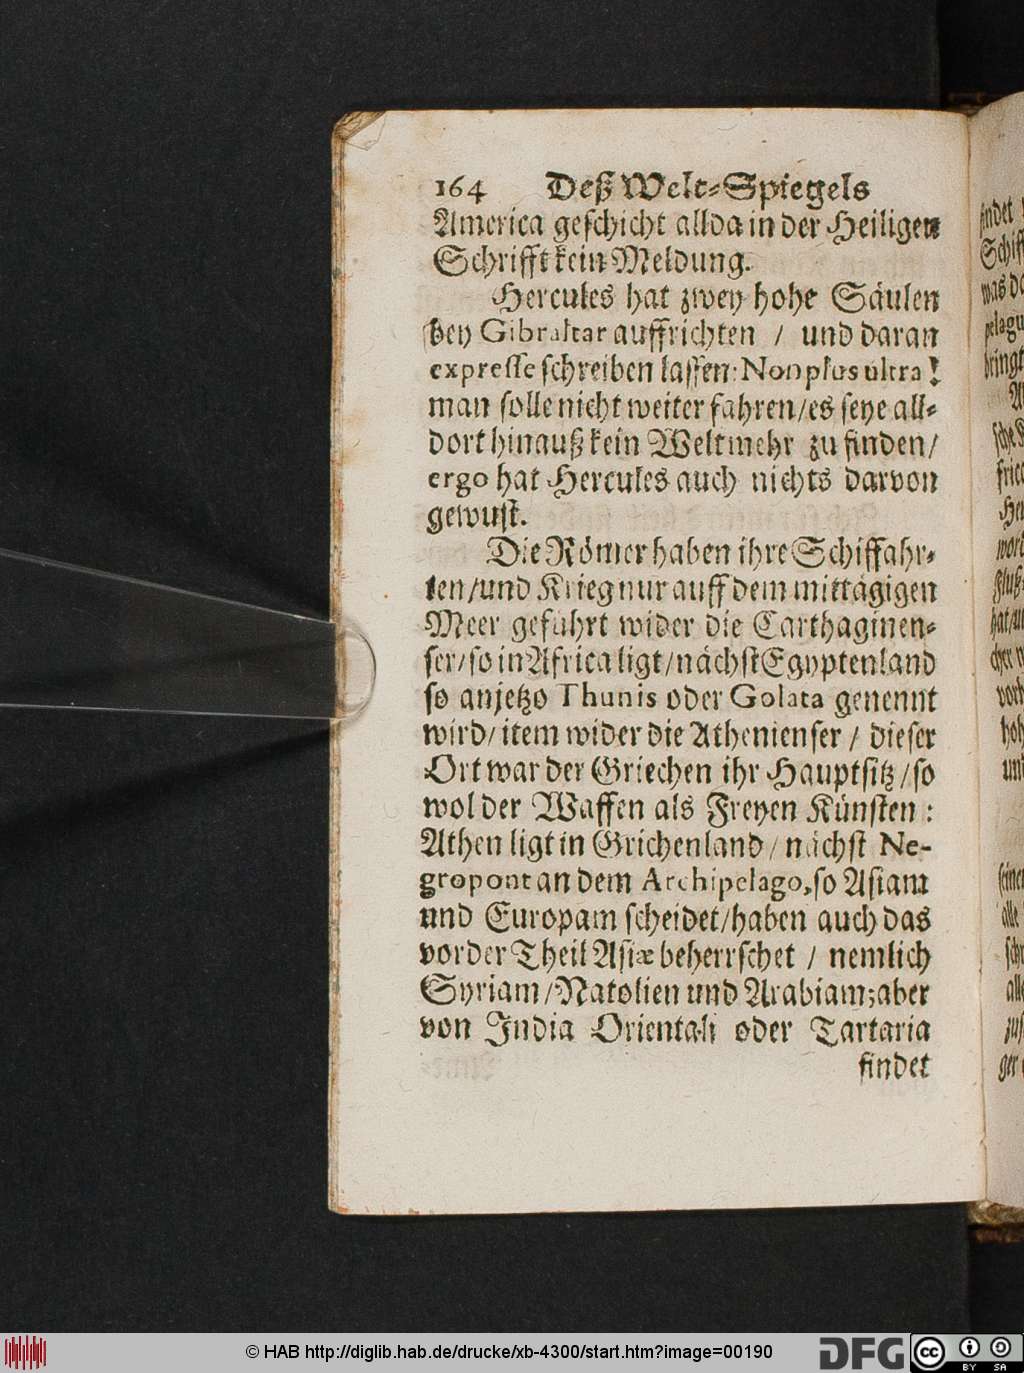 164 Deß Welt-Spiegels
America geschicht allda in der Heiligen
Schrifft kein Meldung.
Hercules hat zwey hohe Säulen
bey Gibraltar auffrichten / und daran
expresse schreiben lassen: Non plus ultra!
man solle nicht weiter fahren/es seye all-
dort hinauß kein Welt mehr zu finden/
ergo hat Hercules auch nichts darvon
gewust.
Die Römer haben ihre Schiffahr-
ten/und Krieg nur auff dem mittägigen
Meer geführt wider die Carthaginen-
ser/so in Africa ligt/nächst Egyptenland
so anjetzo Thunis oder Golata genennt
wird/item wider die Athenienser / dieser
Ort war der Griechen ihr Hauptsitz/so
wol der Waffen als Freyen Künsten:
Athen ligt in Grichenland/nächst Ne-
gropont an dem Archipelago, so Asiam
und Europam scheidet/haben auch das
vorder Theil Asiæ beherrschet / nemlich
Syriam/Natolien und Arabiam; aber
von India Orientali oder Tartaria
findet
© HAB http://diglib.hab.de/drucke/xb-4300/start.htm?image=00190
DFG
cc
BY SA